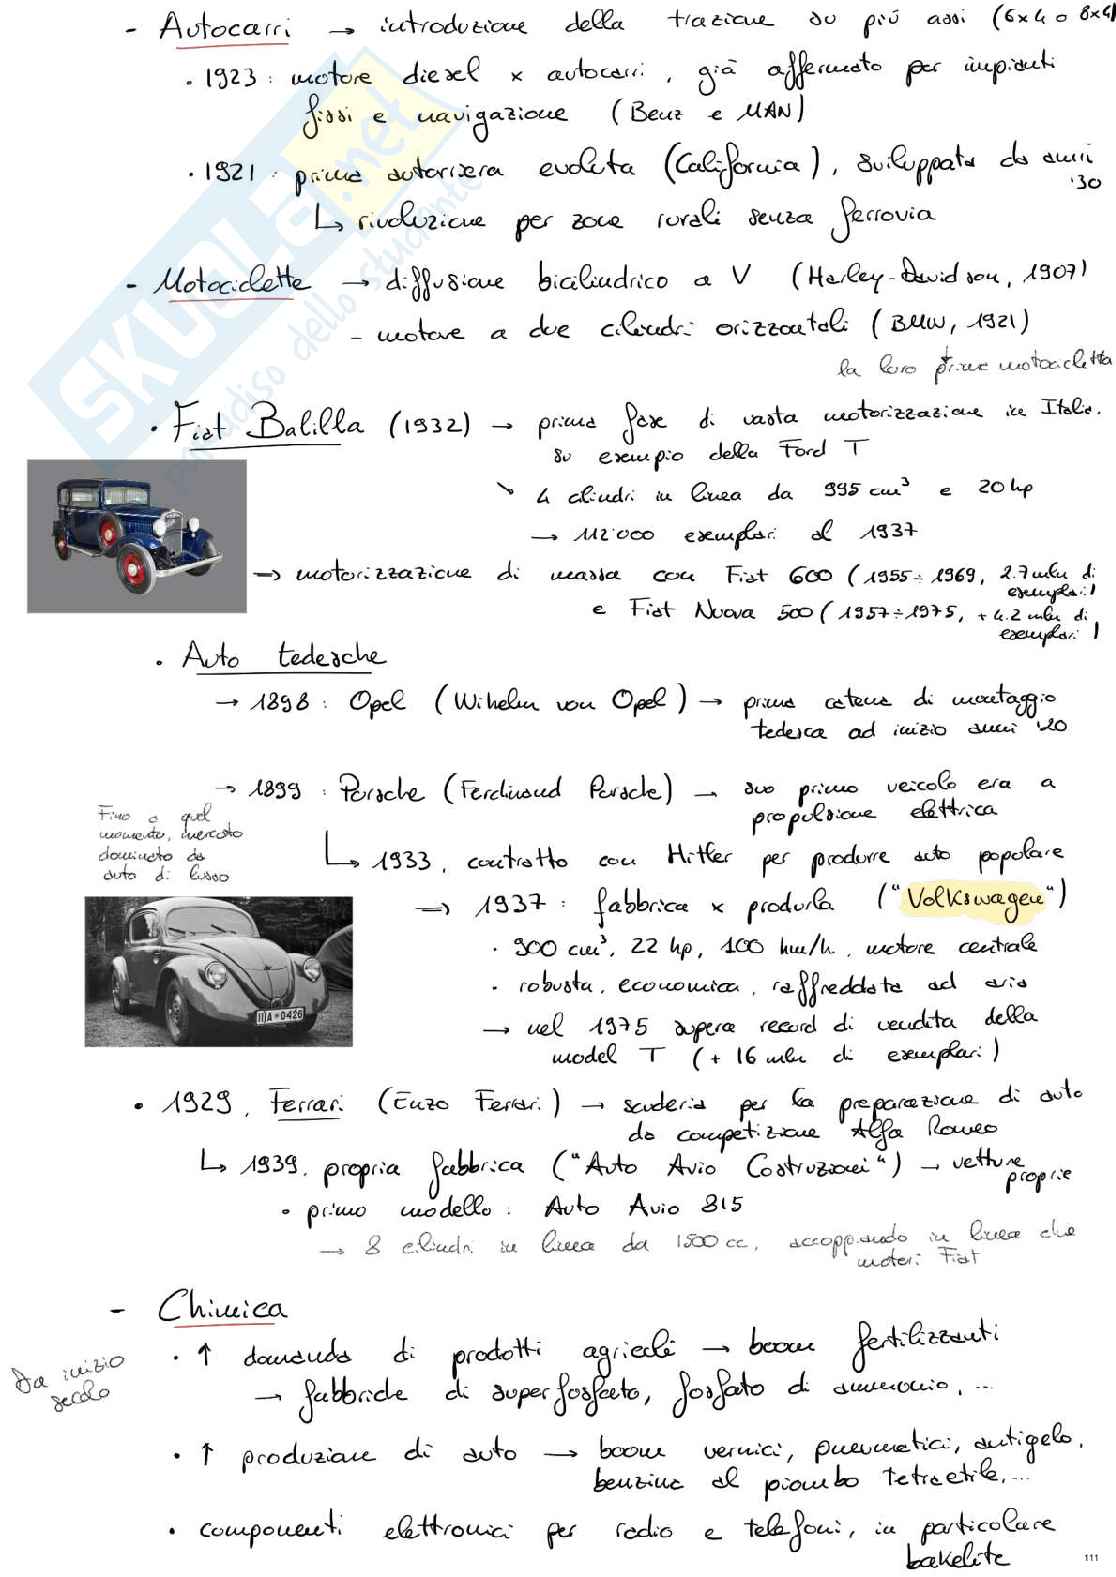 - Autocarri → introduzione della trazione su più assi (6x4 o 8x4)
· 1923: motore diesel x autocarri, già affermato per impianti
fissi e navigazione (Benz e MAN)
· 1921: prima autocisterna evoluta (California), sviluppata da anni '30
↳ rivoluzione per zone rurali senza ferrovia
- Motociclette → diffusione bicilindrico a V (Harley-Davidson, 1907)
- motore a due cilindri orizzontali (BMW, 1921)
la loro prima motocicletta
· Fiat Balilla (1932) → prima fase di vasta motorizzazione in Italia.
su esempio della Ford T
↘ 4 cilindri in linea da 995 cm³ e 20 hp
→ 112'000 esemplari al 1937
⇒ motorizzazione di massa con Fiat 600 (1955÷1969, 2.7 mln di esemplari)
e Fiat Nuova 500 (1957÷1975, +4.2 mln di esemplari)
· Auto tedesche
→ 1898: Opel (Wihelm von Opel) → prima catena di montaggio
tedesca ad inizio anni '20
→ 1899: Porsche (Ferdinand Porsche) → suo primo veicolo era a
propulsione elettrica
Fino a quel
momento, mercato
dominato da
auto di lusso
↳ 1933, contratto con Hitler per produrre auto popolare
⇒ 1937: fabbrica x produrla ("Volkswagen")
· 900 cm³, 22 hp, 100 km/h, motore centrale
· robusta, economica, raffreddata ad aria
→ nel 1975 supera record di vendita della
model T (+ 16 mln di esemplari)
II)A-0426
· 1929, Ferrari (Enzo Ferrari) → scuderia per la preparazione di auto
da competizione Alfa Romeo
↳ 1939, propria fabbrica ("Auto Avio Costruzioni") → vetture proprie
· primo modello: Auto Avio 815
→ 8 cilindri in linea da 1500 cc, accoppiando in linea due
motori Fiat
- Chimica
Da inizio
secolo
· ↑ domanda di prodotti agricoli → boom fertilizzanti
→ fabbriche di superfosfato, fosfato di ammonio, ...
· ↑ produzione di auto → boom vernici, pneumatici, antigelo,
benzina al piombo tetraetile, ...
· componenti elettronici per radio e telefoni, in particolare
bakelite
111
SKUOLA.net
paradiso dello studente